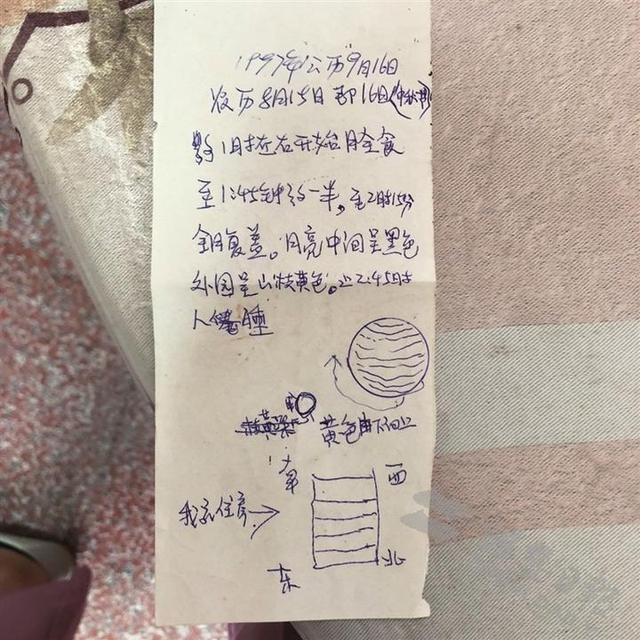 1997年公历9月16日
农历8月15日即16日(中秋节)
约1时左右开始月全食
至1:45分钟约一半,至2时15分
全月复盖。月亮中间呈黑色
外园呈山枝黄色。止2:45时
人睡
黄色由下向上
南
西
我家住房
东
北